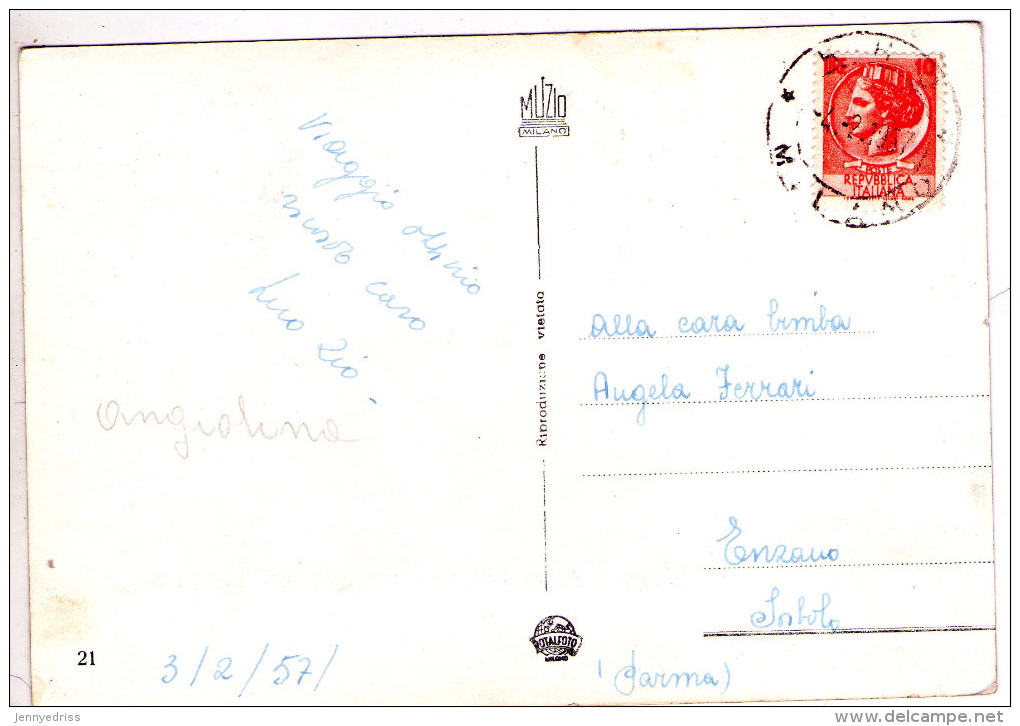 MUZIO
MILANO
LIRE 10
POSTE
REPVBBLICA
ITALIANA
MILANO
Viaggio ottimo
caro
Zio
angiolina
Riproduzione vietata
alla cara bimba
Angela Ferrari
Enzano
Sorbolo
(Parma)
TOTALFOTO
MILANO
21
3/2/57/
jennyedriss
www.delcampe.net